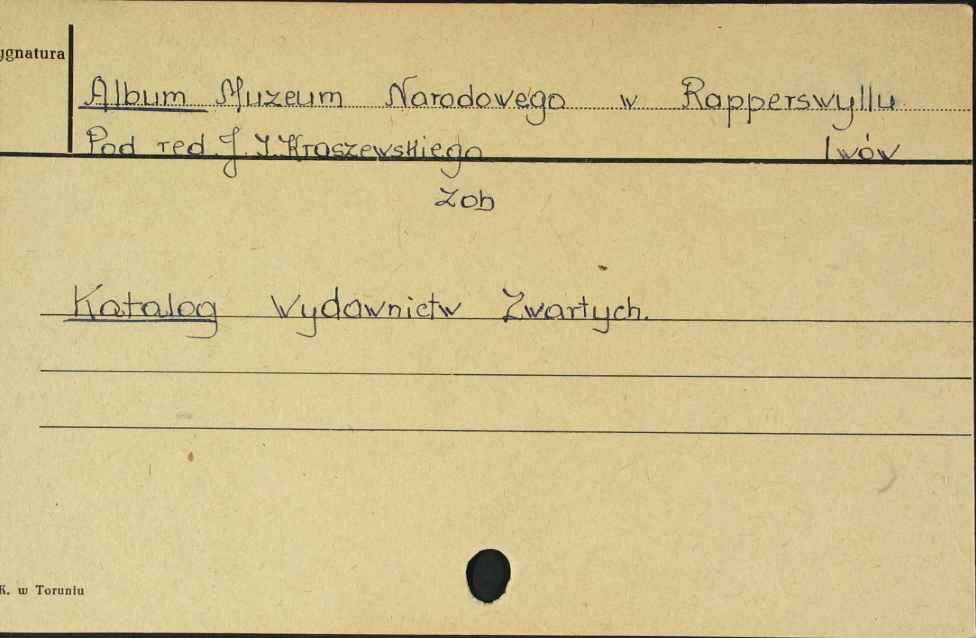 ygnatura
Album Muzeum Narodowego w Rapperswyllu
Pod red. J. I. Kraszewskiego Lwów
Zob
Katalog Wydawnictw Zwartych.
K. w Toruniu